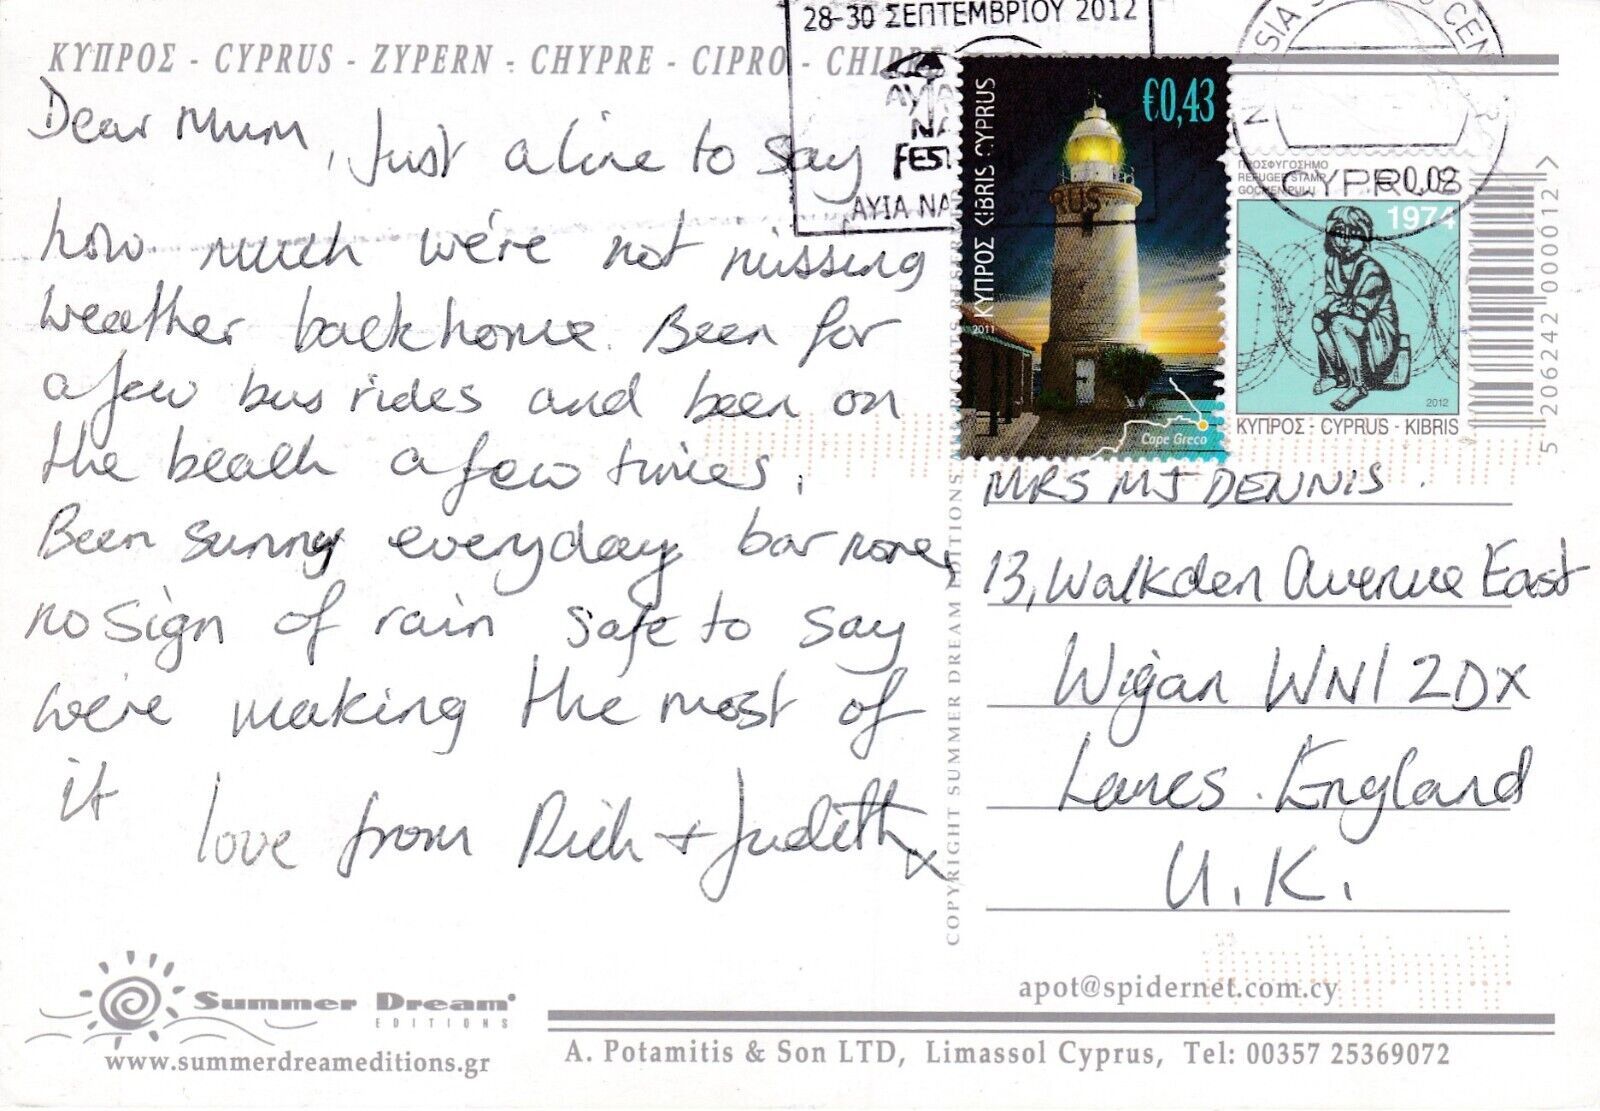 28-30 ΣΕΠΤΕΜΒΡΙΟΥ 2012
ΑΥΙΑ ΝΑ
CYPRUS
ΚΥΠΡΟΣ - CYPRUS - ZYPERN - CHYPRE - CIPRO -
Dear Mum, Just a line to say
how much we're not missing
weather back home. Been for
a few bus rides and been on
the beach a few times.
Been sunny everyday bar none,
no sign of rain safe to say
we're making the most of
it
love from Rich + Judith x
€0,43
ΚΥΠΡΟΣ KIBRIS CYPRUS
2011
Cape Greco
ΠΡΟΣΦΥΓΟΣΗΜΟ
REFUGEE STAMP
GÖÇMEN PULU
€0,02
1974
2012
ΚΥΠΡΟΣ - CYPRUS - KIBRIS
5 206242 000012 >
MRS MJ DENNIS.
13, Walkden Avenue East
Wigan WN1 2DX
Lancs. England
U.K.
COPYRIGHT SUMMER DREAM EDITIONS
apot@spidernet.com.cy
Summer Dream
EDITIONS
www.summerdreameditions.gr
A. Potamitis & Son LTD, Limassol Cyprus, Tel: 00357 25369072